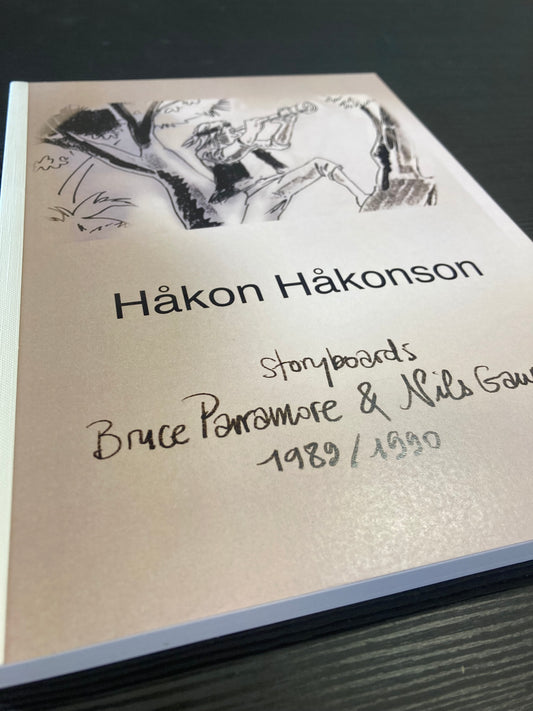 Håkon Håkonson
storyboards
Bruce Parramore & Nils
1989/1990